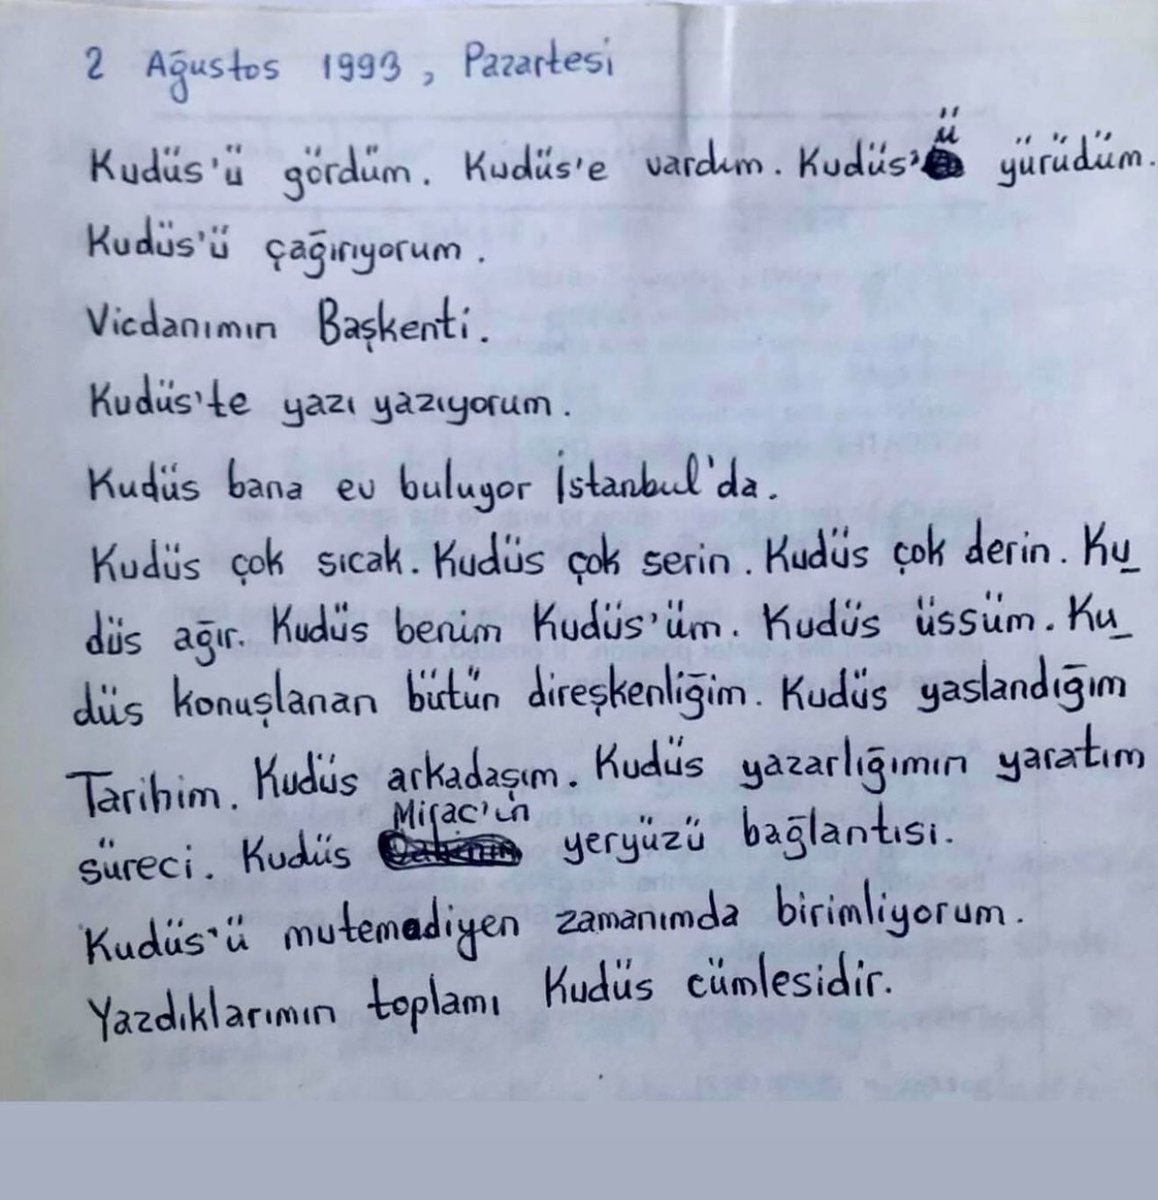 2 Ağustos 1993, Pazartesi
Kudüs'ü gördüm. Kudüs'e vardım. Kudüs'ü yürüdüm.
Kudüs'ü çağırıyorum.
Vicdanımın Başkenti.
Kudüs'te yazı yazıyorum.
Kudüs bana ev buluyor İstanbul'da.
Kudüs çok sıcak. Kudüs çok serin. Kudüs çok derin. Ku_
düs ağır. Kudüs benim Kudüs'üm. Kudüs üssüm. Ku_
düs konuşlanan bütün direşkenliğim. Kudüs yaslandığım
Tarihim. Kudüs arkadaşım. Kudüs yazarlığımın yaratım
süreci. Kudüs Mirac'ın yeryüzü bağlantısı.
Kudüs'ü mutemadiyen zamanımda birimliyorum.
Yazdıklarımın toplamı Kudüs cümlesidir.